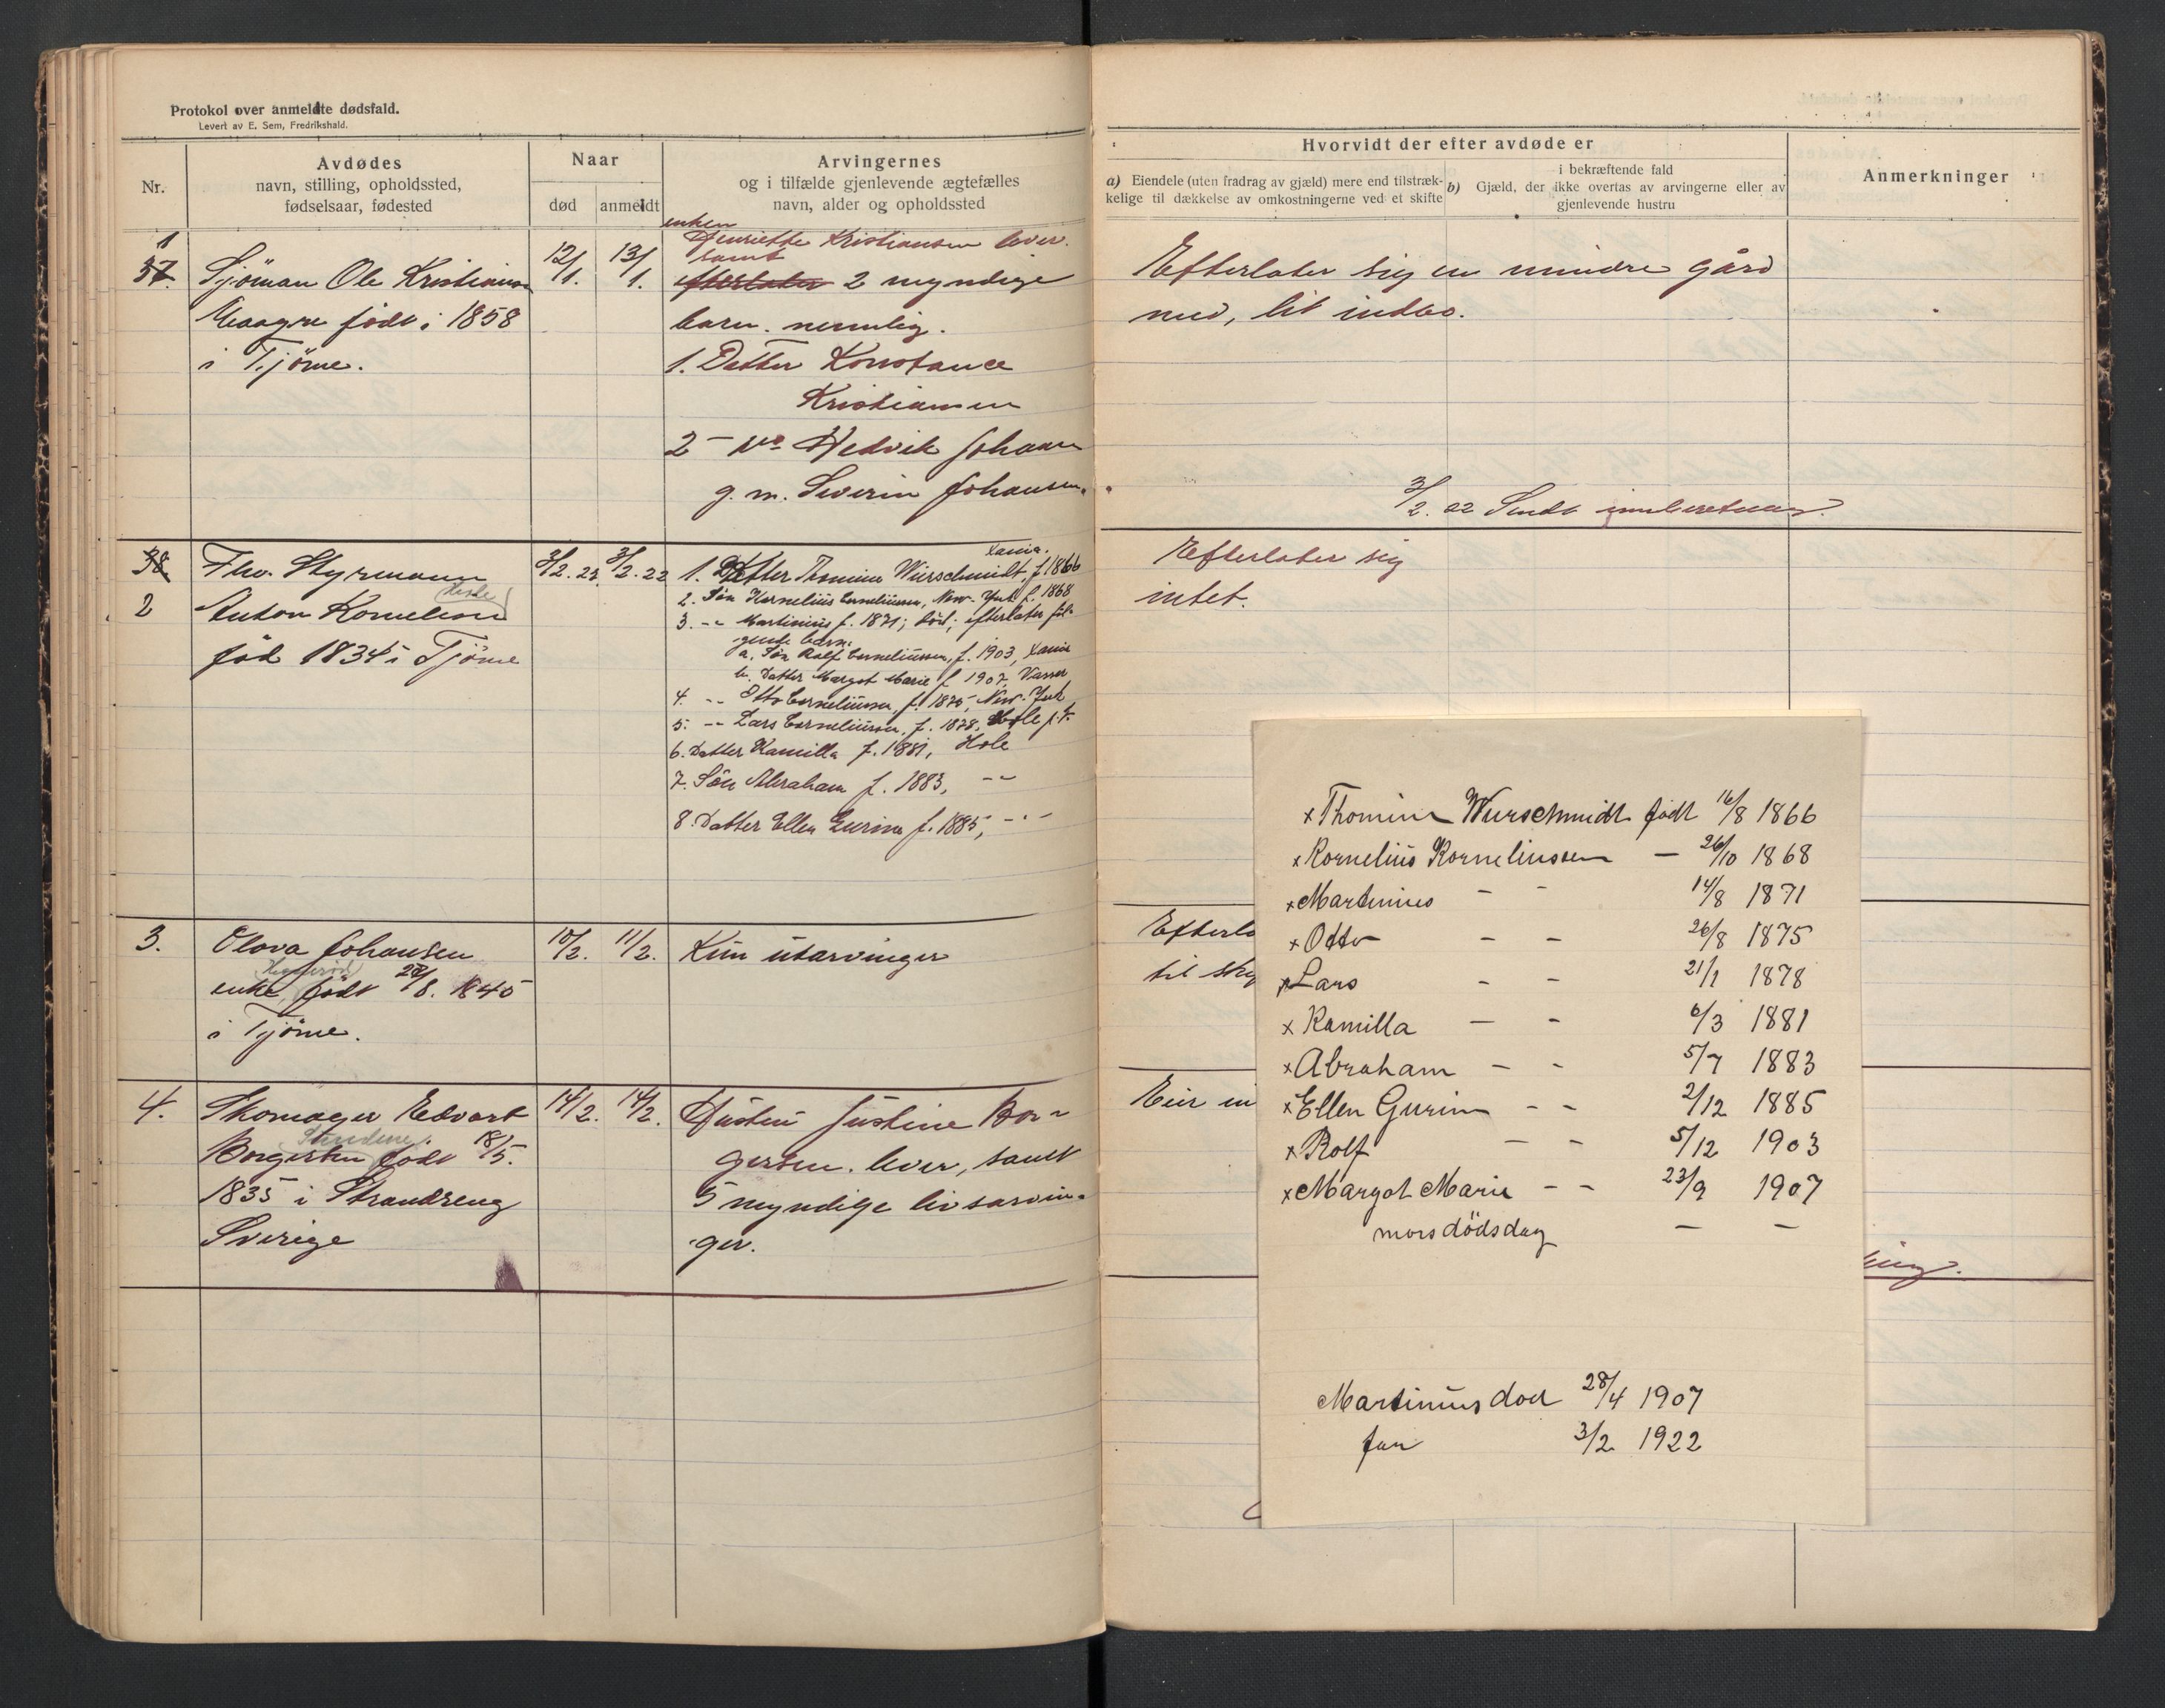 Protokol over anmeldte dødsfald.
Levert av E. Sem, Fredrikshald.
Nr.
Avdødes
navn, stilling, opholdssted,
fødselsaar, fødested
Naar
død
anmeldt
Arvingernes
og i tilfælde gjenlevende ægtefælles
navn, alder og opholdssted
1
37.
Sjöman Ole Kristiansen
født i 1858
i Tjöme.
12/1.
13/1.
enken
Henriette Kristiansen lever.
samt
efterlater 2 myndige
barn. nemlig.
1. Datter Konstance
Kristiansen
2 - Hedvik Johansen
g. m. Severin Johansen.
38
2
Fhv. Styrmann
Hole
Anton Kornelius
föd 1834 i Tjöme
3/2. 22.
3/2. 22
Xania.
1. Datter Thomine Würschmidt, f. 1866
2. Sön Kornelius Corneliussen, New-York f. 1868
3. -"- Martinius f. 1871; död; efterlater föl-
gende barn:
a. Sön Rolf Corneliussen, f. 1903, Xania
b. Datter Margot Marie f. 1907, Vasser
4. -"- Otto Corneliussen, f. 1875, New-York
5. -"- Lars Corneliussen, f. 1878, Hole p. t.
6. Datter Kamilla f. 1881, Hole
7. Sön Abraham f. 1883, -"-
8. Datter Ellen Gurine f. 1885, -"-
3.
Olava Johansen
enke, født 27/8. 1845
i Tjöme.
10/2.
11/2.
Kun utarvinger
4.
Skomager Edvart
Borgersen født 18/5.
1835 i Strandreng
Sverige
14/2.
14/2.
Hustru Justine Bor-
gersen. lever, samt
5 myndige livsarvin-
ger.
Hvorvidt der efter avdøde er
a) Eiendele (uten fradrag av gjæld) mere end tilstræk-
kelige til dækkelse av omkostningerne ved et skifte
b) Gjæld, der ikke overtas av arvingerne eller av
i bekræftende fald
gjenlevende hustru
Anmerkninger
Efterlater sig en mindre gård
med, lit indbo.
3/2. 22 Sendt innberetning.
Efterlater sig
intet.
Efterla
til sky
Eier in
ning.
x Thomine Wurschmidt født 16/8 1866
x Kornelius Korneliussen - 26/10 1868
x Martinius - - 14/8 1871
x Otto - - 26/8 1875
x Lars - - 21/1 1878
x Kamilla - - 6/3 1881
x Abraham - - 5/7 1883
x Ellen Gurine - - 2/12 1885
x Rolf - - 5/12 1903
x Margot Marie - - 23/9 1907
mors dödsdag - -
Martinius död 28/4 1907
far 3/2 1922